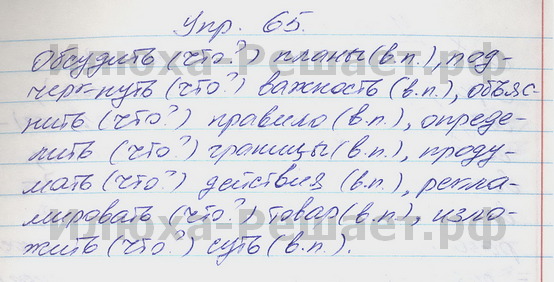 Упр. 65.
Обсудить (что?) планы (в.п.), под-
черкнуть (что?) важность (в.п.), объяс-
нить (что?) правило (в.п.), опреде-
лить (что?) границы (в.п.), проду-
мать (что?) действия (в.п.), рекла-
мировать (что?) товар (в.п.), изло-
жить (что?) суть (в.п.).
Илюха-Решает.рф
Илюха-Решает.рф